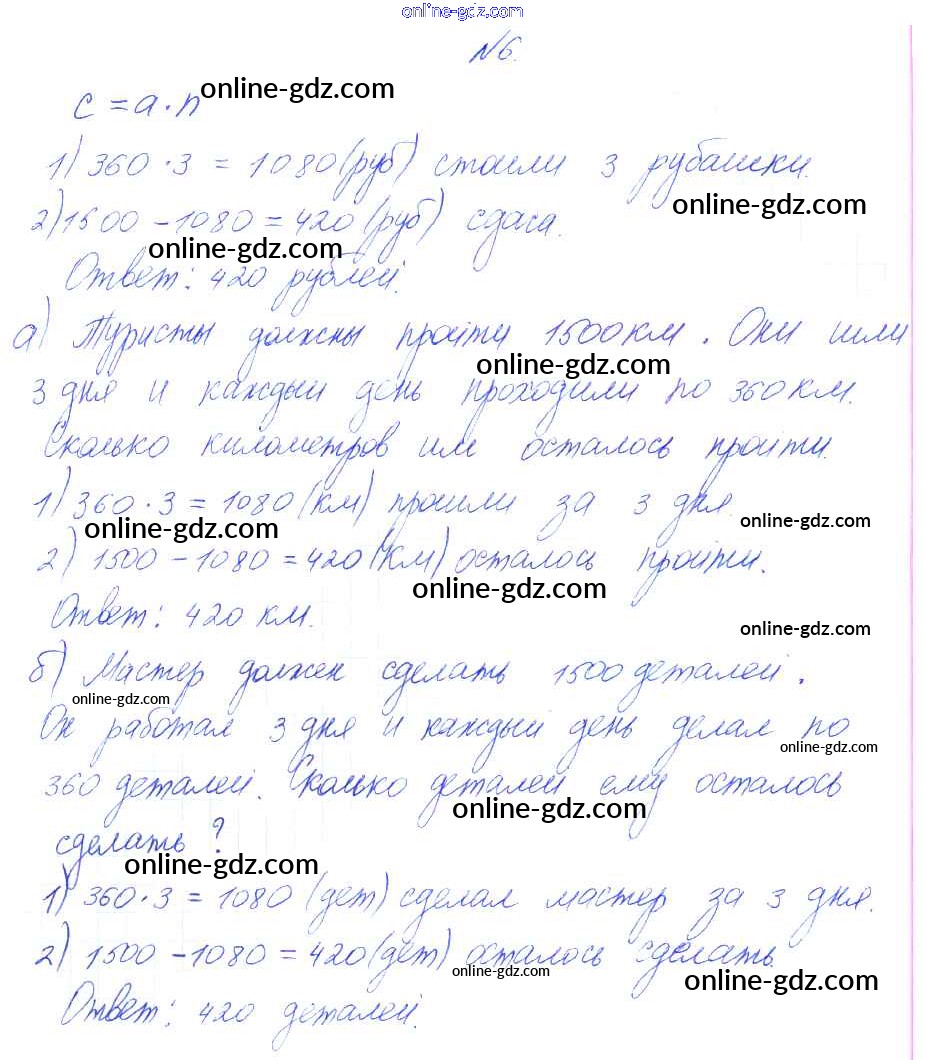 online-gdz.com
№6.
c = a · n online-gdz.com
1) 360 · 3 = 1080 (руб) стоили 3 рубашки.
online-gdz.com
2) 1500 - 1080 = 420 (руб) сдача.
online-gdz.com
Ответ: 420 рублей.
а) Туристы должны пройти 1500 км. Они шли
online-gdz.com
3 дня и каждый день проходили по 360 км.
Сколько километров им осталось пройти.
1) 360 · 3 = 1080 (км) прошли за 3 дня.
online-gdz.com online-gdz.com
2) 1500 - 1080 = 420 (км) осталось пройти.
online-gdz.com
Ответ: 420 км.
online-gdz.com
б) Мастер должен сделать 1500 деталей.
online-gdz.com
Он работал 3 дня и каждый день делал по
online-gdz.com
360 деталей. Сколько деталей ему осталось
online-gdz.com
сделать?
online-gdz.com
1) 360 · 3 = 1080 (дет) сделал мастер за 3 дня.
2) 1500 - 1080 = 420 (дет) осталось сделать.
online-gdz.com online-gdz.com
Ответ: 420 деталей.